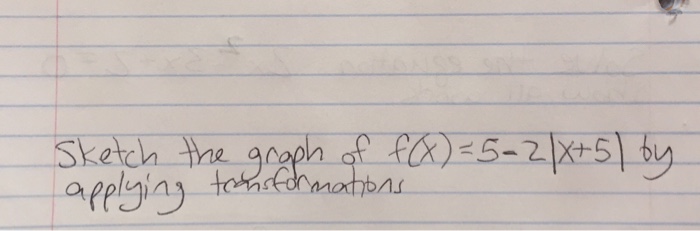 Sketch the graph of f(x)=5-2|x+5| by
applying transformations